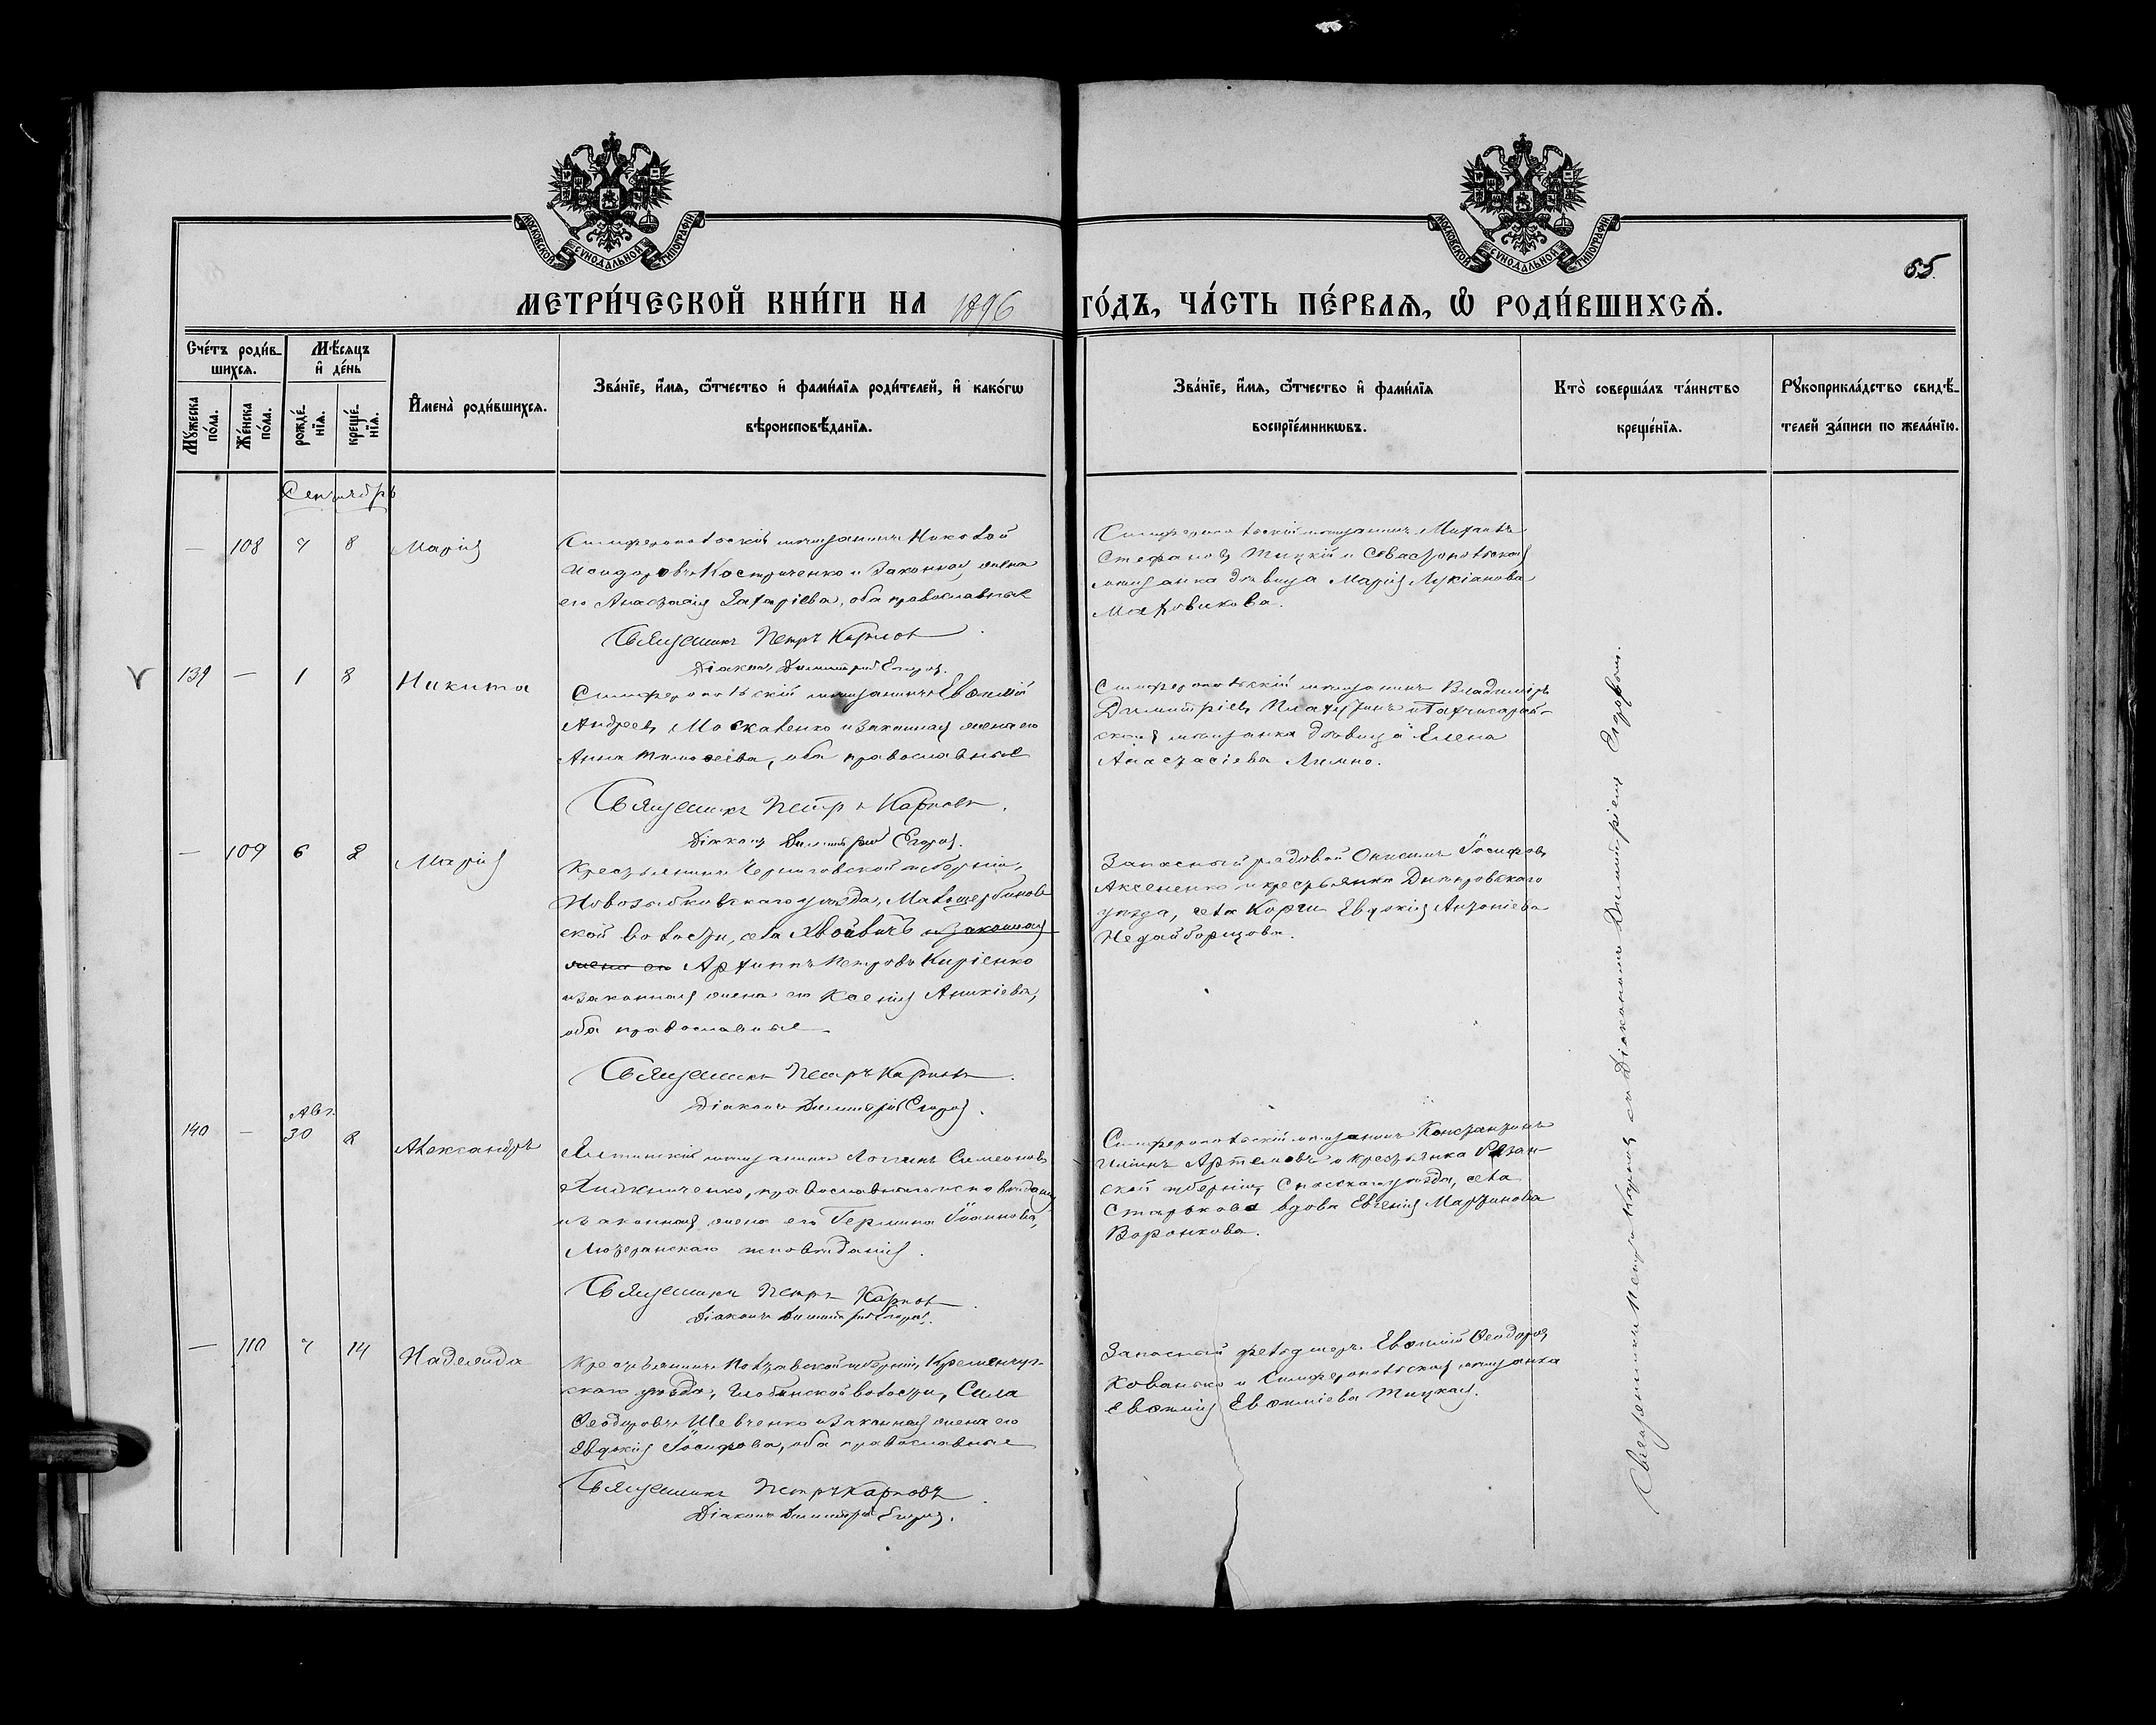 МОСКОВСКОЙ СѴНОДАЛЬНОЙ ТИПОГРАФІИ
МОСКОВСКОЙ СѴНОДАЛЬНОЙ ТИПОГРАФІИ
65.
МЕТРИ́ЧЕСКОЙ КНИ́ГИ НА 1896 ГО́ДЪ, ЧА́СТЬ ПЕ́РВАѦ, Ѡ РОДИ́ВШИХСѦ.
Сче́тъ роди́в-
шихсѧ.
Мꙋжеска по́ла.
Же́нска по́ла.
Мѣ́сѧцъ
и҆ де́нь
рожде́-нїѧ.
креще́-нїѧ.
И҆мена̀ роди́вшихсѧ.
Зва́нїе, и҆́мѧ, ѻ҆́тчество и҆ фами́лїѧ роди́телей, и҆ како́гѡ
вѣроисповѣ́данїѧ.
Зва́нїе, и҆́мѧ, ѻ҆́тчество и҆ фами́лїѧ
воспрїе́мникѡвъ.
Кто̀ соверша́лъ та́инство
креще́нїѧ.
Рꙋкоприкла́дство свидѣ́-
телей за́писи по жела́нїю.
Сентябрь
— 108 7 8 Марія
Симферопольскій мѣщанинъ Николай
Исидоровъ Костриченко и законная жена
его Анастасія Захаріева, оба православные
Священникъ Петръ Карпов
Діаконъ Димитрій Егоров.
Симферопольскій мѣщанинъ Михаилъ
Стефановъ Тицкій и Севастопольская
мѣщанка дѣвица Марія Лукіанова
Маховикова.
139 — 1 8 Никита
Симферопольскій мѣщанинъ Евѳимій
Андреевъ Москаленко и законная жена его
Анна Тимоѳеева, оба православные
Священникъ Петръ Карповъ.
Діаконъ Димитрій Егоров.
Симферопольскій мѣщанинъ Владиміръ
Димитріевъ и Бахчисарай-
ская мѣщанка дѣвица Елена
Анастасіева Лимно.
— 109 6 8 Марія
Крестьянинъ Черниговской губерніи,
Новозыбковскаго уѣзда, Малощербинов
ской волости, села и законная
жена его Архиппъ Петровъ Киріенко
и законная жена его Ксенія Аникіева,
оба православные
Священникъ Петръ Карповъ.
Діаконъ Димитрій Егоров.
Запасный рядовой Онисимъ Іосифовъ
Аксененко и крестьянка Днѣпровскаго
уѣзда, села Корги Евдокія Антоніева
Недайборщова.
140 — Авг. 30 8 Александръ
Ялтинскій мѣщанинъ Логинъ Симеоновъ
православнаго исповѣданія,
и законная жена его Гермина Іоаннова,
Лютеранскаго исповѣданія.
Священникъ Петръ Карпов.
Діаконъ Димитрій Егоров.
Симферопольскій мѣщанинъ Константинъ
Ильинъ Артемовъ и крестьянка Рязан-
ской губерніи, Спасскаго уѣзда, села
Старькова вдова Евгенія Мартинова
Воронкова.
— 110 7 14 Надежда
Крестьянинъ Полтавской губерніи, Кременчуг-
скаго уѣзда, Глобинской волости, Сила
Ѳеодоровъ Шевченко и законная жена его
Евдокія Іосифова, оба православные
Священникъ Петръ Карповъ.
Діаконъ Димитрій Егоров.
Запасный фельдшеръ Евѳимій Ѳеодоровъ
Кованько и Симферопольская мѣщанка
Евѳимія Евѳиміева Тицкая.
Священникъ Петръ Карповъ съ Діакономъ Димитріемъ Егоровым.